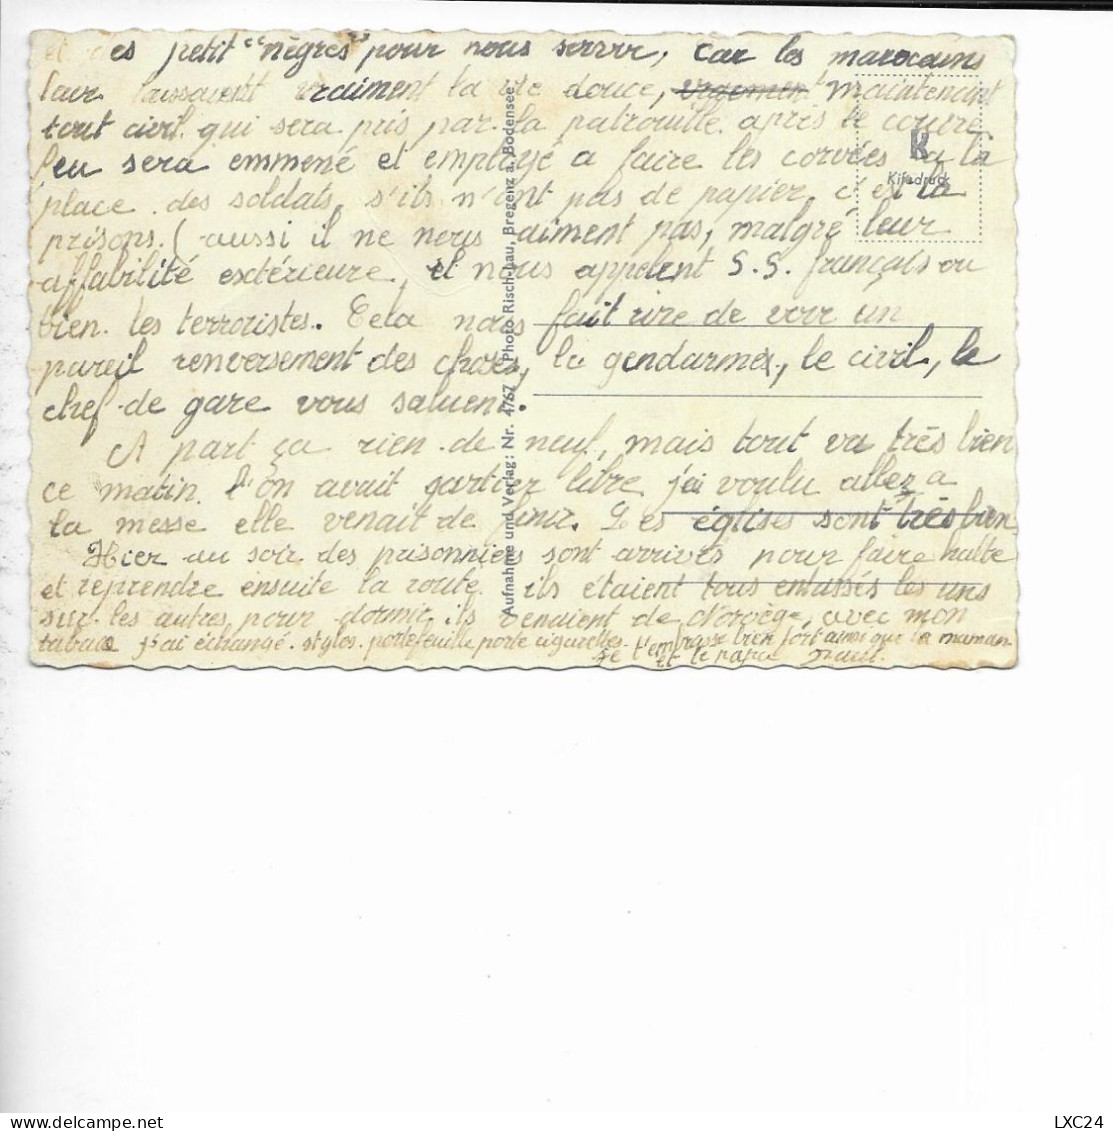 et des petit "nègres" pour nous servir, car les marocains
leur laissaient vraiment la vie douce, urgement maintenant
tout civil qui sera pris par la patrouille après le couvre
feu sera emmené et employé a faire les corvées a la
place des soldats, s'ils n'ont pas de papier, c'est la
prisons. (aussi il ne nous aiment pas, malgré leur
affabilité extérieure, et nous appelent S.S. français ou
bien les terroristes. Cela nous fait rire de voir un
pareil renversement des choses, la gendarmes, le civil, le
chef de gare vous saluent.
A part ça rien de neuf, mais tout va très bien
ce matin l'on avait quartier libre j'ai voulu allez a
la messe elle venait de finir. Les églises sont très bien
Hier au soir des prisonniers sont arrivés pour faire halte
et reprendre ensuite la route. ils étaient tous entassés les uns
sur les autres pour dormir, ils venaient de Norvège, avec mon
tabac j'ai échangé. stylos. portefeuille porte cigarettes. Je t'embrasse bien fort ainsi que la maman
et le papa
K
Kifodruck
Aufnahme und Verlag: Nr. 4767 Photo Risch-Lau, Bregenz a. Bodensee
LXC24